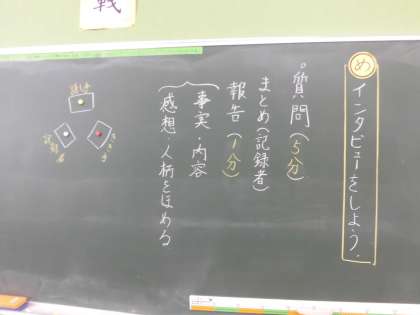 め インタビューをしよう。
。質問(5分)
まとめ(記録者)
報告(1分)
事実・内容
感想・人柄をほめる
話し手